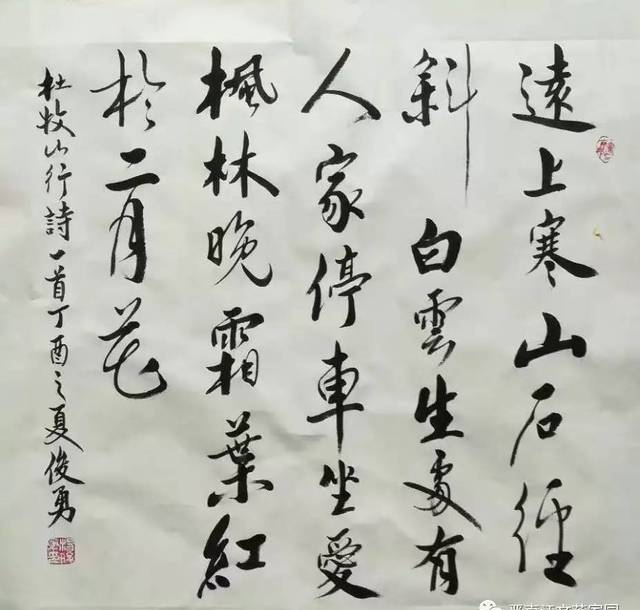 遠上寒山石徑
斜白雲生處有
人家停車坐愛
楓林晚霜葉紅
於二月花
杜牧山行詩一首丁酉之夏俊勇